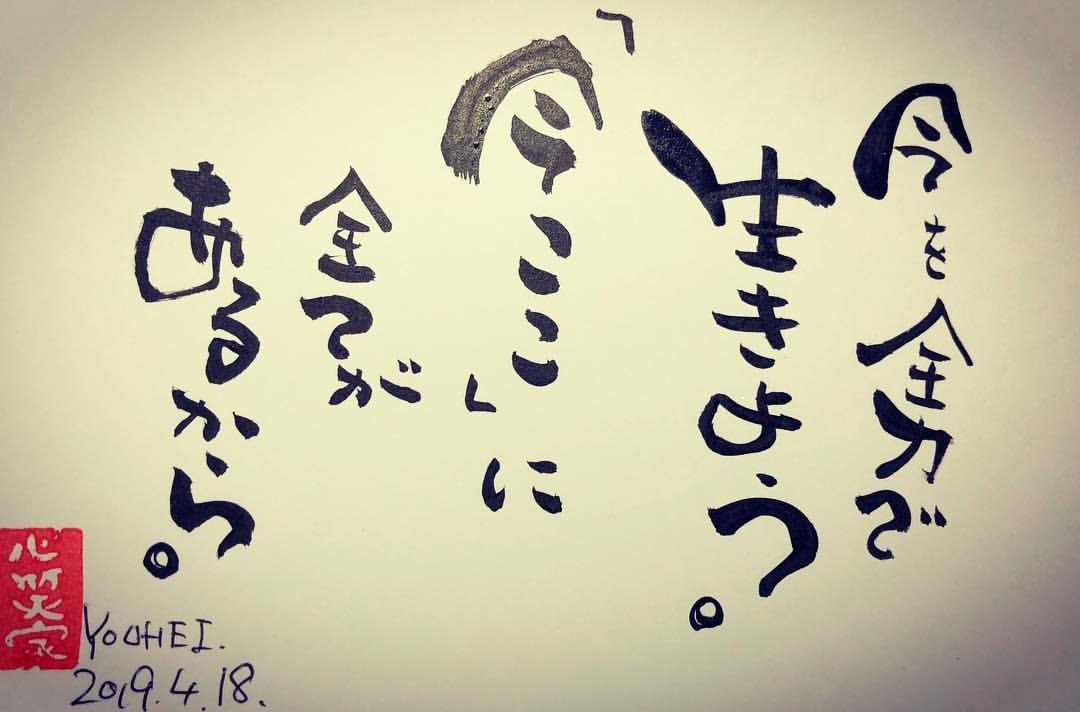 今を全力で
生きよう。
「今ここ」に
全てが
あるから。
心笑家
YOUHEI.
2019.4.18.